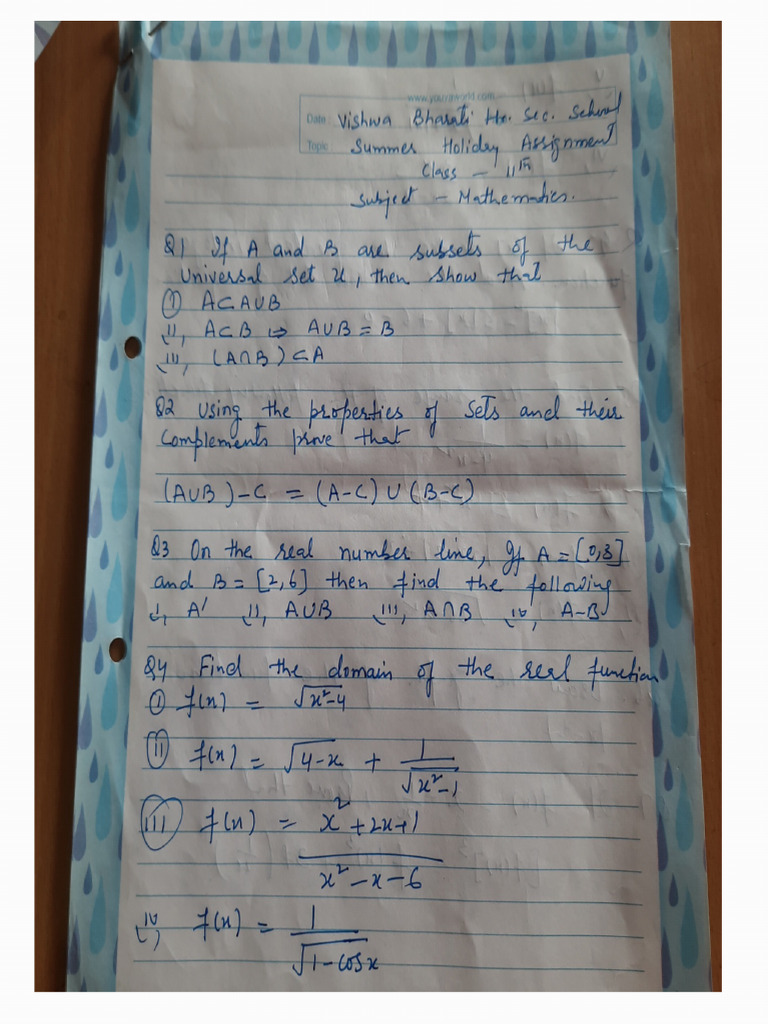 www.yourzworld.com
Date Vishwa Bharati Hr. Sec. School
Topic Summer Holiday Assignment
Class - 11th
Subject - Mathematics.
Q1 If A and B are subsets of the
Universal set U, then show that
(i) A⊂A∪B
ii, A⊂B ⇒ A∪B = B
iii, (A∩B) ⊂A
Q2 Using the properties of Sets and their
Complements prove that
(A∪B)-C = (A-C) ∪ (B-C)
Q3 On the real number line, If A = [0,3]
and B = [2,6] then find the following
i, A' ii, A∪B iii, A∩B iv, A-B
Q4 Find the domain of the real function
(i) f(x) = √x²-4
(ii) f(x) = √4-x + 1/√x²-1
(iii) f(x) = x²+2x+1/x²-x-6
iv) f(x) = 1/√1-cosx